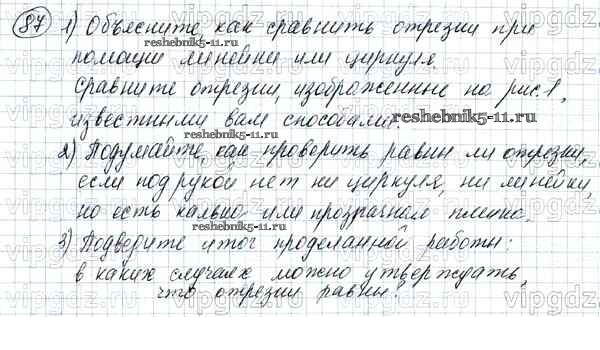 87 1) Объясните, как сравнить отрезки при
reshebnik5-11.ru
помощи линейки или циркуля.
Сравните отрезки, изображенные на рис. 1,
reshebnik5-11.ru
известными вам способами.
reshebnik5-11.ru
2) Подумайте, как проверить равны ли отрезки,
если под рукой нет ни циркуля, ни линейки,
но есть калька или прозрачная пленка.
reshebnik5-11.ru
3) Подведите итог проделанной работы:
в каких случаях можно утверждать,
что отрезки равны?